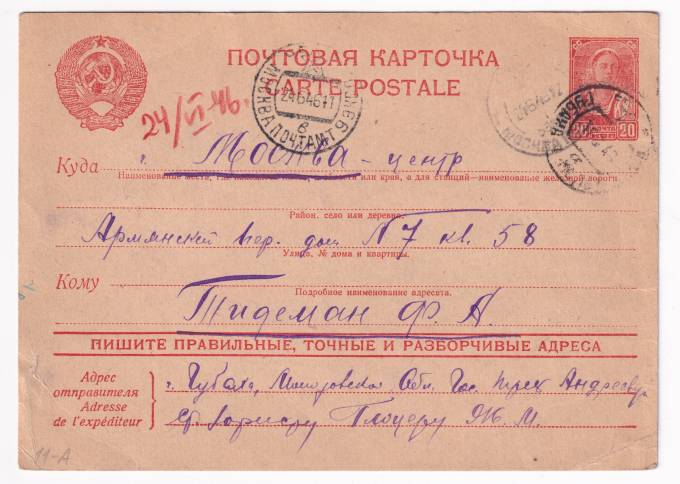 ПОЧТОВАЯ КАРТОЧКА
CARTE POSTALE
24/VI 46.
МОСКВА ПОЧТАМТ
24646
20
Куда г. Москва - центр
Наименование места, где или края, а для станций—наименование железной дороги
Район, село или деревня
Армянский пер. дом N 7 кв. 58
Улица, № дома и квартиры.
Кому
Подробное наименование адресата.
Тидеман Ф. А.
ПИШИТЕ ПРАВИЛЬНЫЕ, ТОЧНЫЕ И РАЗБОРЧИВЫЕ АДРЕСА
Адрес
отправителя
Adresse
de l'expéditeur
г. Губаха, Молотовской Обл.
Ж. М.
11-А